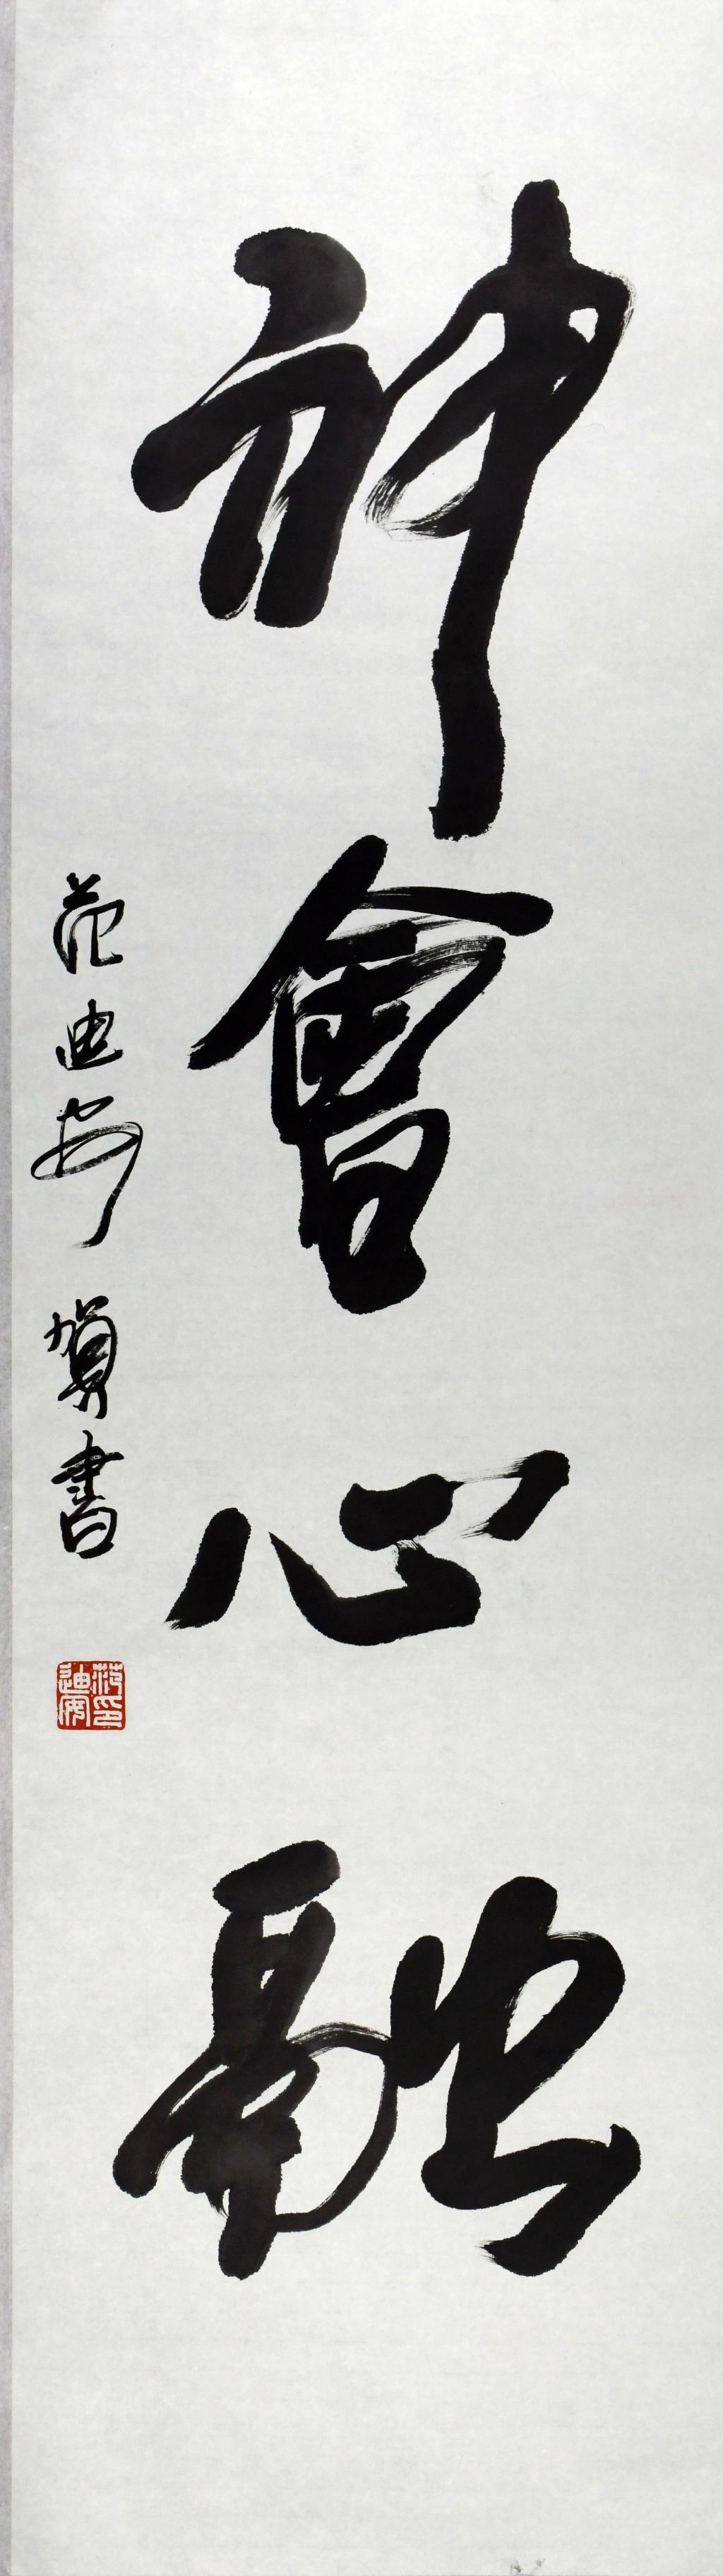 神會心融
范迪安賀書
范印迪安